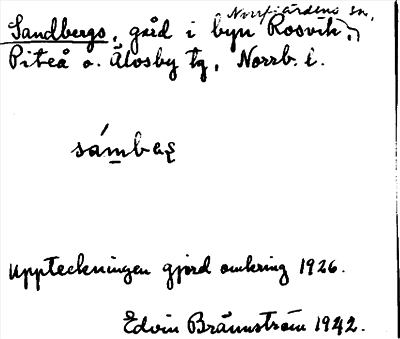 Norrfjärdens sn,
Sandbergs, gård i byn Rosvik,
Piteå o. Älvsby tg, Norrb. l.
sámbaʂ
Uppteckningen gjord omkring 1926.
Edvin Brännström 1942.